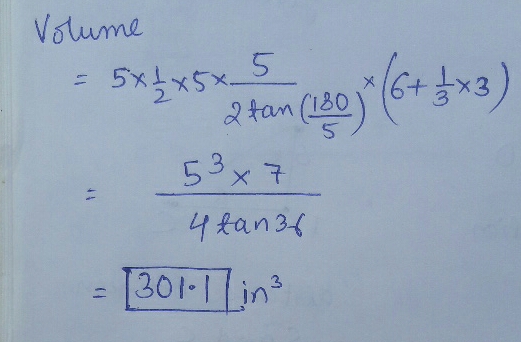 Volume
= 5×1/2×5×5/(2 tan(180/5))×(6+1/3×3)
= (5³×7)/(4 tan36)
= 301.1 in³